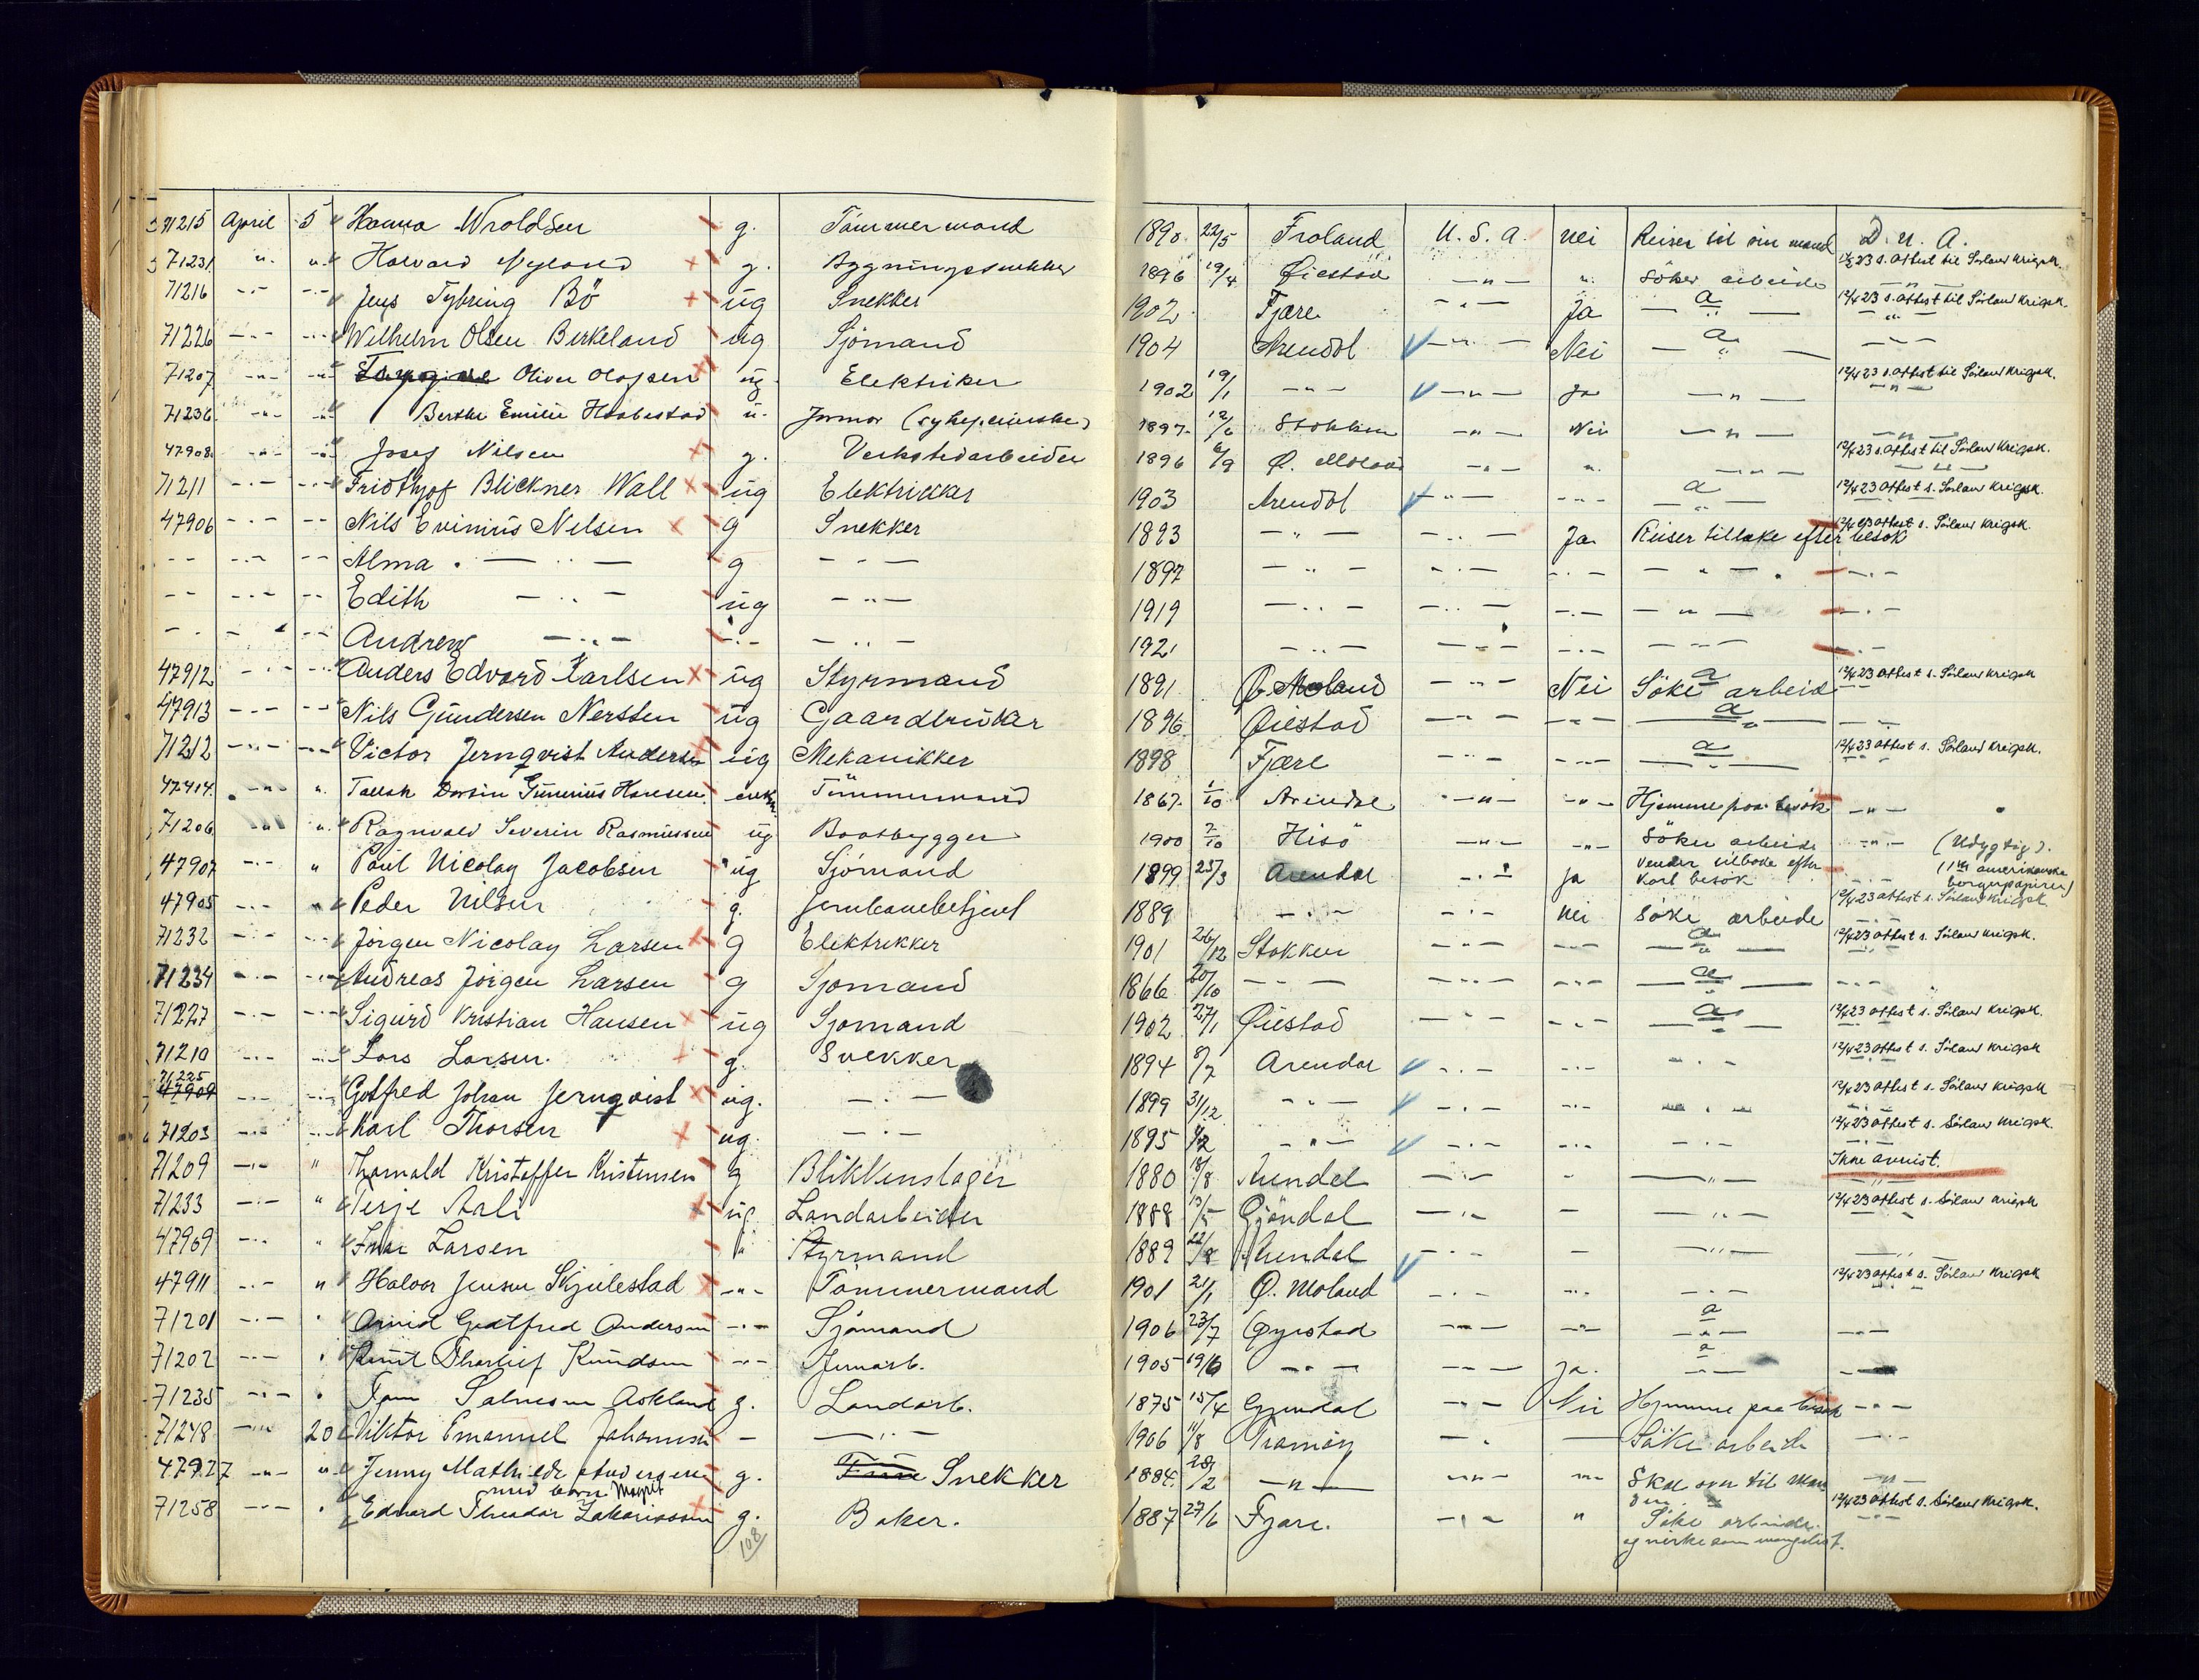 71215 April 5 " Hanna Wroldsen g. Tömmermand 1890. 22/5 Froland U. S. A. nei Reiser til sin mand D. n. A.
71231 " " Halvard Nyland g. Bygningssnekker 1896 19/4 Öiestad — " — " Söker arbeide 12/4 23 s. attest til Sörland Krigsk. — " —
71216 — " — — " — Jens Tybring Bö ug Snekker 1902 Fjære — " — Ja — " — a 12/4 23 s. attest til Sörland Krigsk. — " —
71226 — " — — " — Wilhelm Olsen Birkeland ug Sjömand 1904 Arendal — " — Nei — " — a — " —
71207 — " — — " — Oliver Olafsen ug Elektriker 1902 19/1 — " — — " — Ja — " — 12/4 23 s. attest til Sörland Krigsk. — " —
71236 — " — — " — Berthe Emilie Haabestad u. Jomor (sykepleierske) 1897. 12/6 Stokken — " — Nei — " — — " —
47908 — " — — " — Josef Nilsen g. Verkstedarbeider 1896 6/9 Ö. Moland — " — " — " — 12/4 23 s. attest til Sörland Krigsk. — " —
71211 — " — — " — Fridthjof Blickner Wall ug Elektrikker 1903 Arendal — " — — " — — " — a 12/4 23 attest s. Sörland Krigsk.
47906 — " — — " — Nils Evinius Nelsen g Snekker 1893 — " — — " — Ja Reiser tilbake efter besök 12/4 23 attest s. Sörland Krigsk.
— " — — " — — " — Alma — " — g — " — 1897 — " — — " — — " — — " — — " —
— " — — " — — " — Edith — " — ug — " — 1919 — " — — " — — " — — " — — " —
— " — — " — — " — Andrew — " — — " — — " — 1921 — " — — " — — " — — " — — " —
47912 — " — — " — Anders Edvard Karlsen ug Styrmand 1891 Ö. Moland — " — Nei Söke arbeid a 12/4 23 attest s. Sörland Krigsk — " —
47913 — " — — " — Nils Gundersen Nersten ug Gaardbruker 1896 Öiestad — " — — " — — " — a — " —
71212 — " — — " — Victor Jernqvist Andersen ug Mekanikker 1898 Fjære — " — — " — — " — a 12/4 23 attest s. Sörland Krigsk. — " —
47414 — " — " Gunerius Hansen enkm. Tömmermand 1867. 1/10 Arendal — " — — " — Hjemme paa besök — " —
71206 — " — " Ragnvald Severin Rasmussen ug Baatbygger 1900 2/10 Hisö — " — — " — Söker arbeide — " — (Udygtig).
47907 — " — " Paul Nicolay Jacobsen ug Sjömand 1899 25/3 Arendal — " — ja Vender tilbake efter kort besök — " — (1ste amerikanske borgerpapirer)
47905 — " — " Peder Nilsen g. Jernbanebetjent 1889 — " — — " — nei Söke arbeide 12/4 23 attest s. Sörland Krigsk. — " —
71232 — " — — " — Jörgen Nicolay Larsen g Elektrikker 1901 26/12 Stokken — " — — " — — " — a 12/4 23 attest s. Sörland Krigsk. — " —
71234 — " — — " — Andreas Jörgen Larsen g Sjömand 1866 20/10 — " — — " — — " — — " — a — " —
71227 — " — — " — Sigurd Kristian Hansen ug Sjömand 1902 27/1 Öiestad — " — — " — — " — a 12/4 23 attest s. Sörland Krigsk. — " —
71210 — " — — " — Lars Larsen. g. Snekker 1894 8/7 Arendal — " — — " — — " — 12/4 23 attest s. Sörland Krigsk — " —
71225 47904 — " — — " — Gotfred Johan Jernqvist ug. — " — 1899 31/12 — " — — " — — " — — " — 12/4 23 attest s. Sörland Krigsk — " —
71203 — " — — " — Karl Thorsen ug. — " — 1895 — " — — " — — " — — " — 12/4 23 attest s. Sörland Krigsk. — " —
71209 — " — " Thorvald Kristoffer Kristensen g Blikkenslager 1880 18/8 Arendal — " — " — " — Ikke anvist. — " —
71233 — " — " Terje Aali ug Landarbeider 1888 13/5 Gjöndal — " — — — " — 12/4 23 attest s. Sörland Krigsk — " —
47909 — " — " Larsen " Styrmand 1889 22/8 Arendal — " — — — " — — " —
47911 — " — " Halvor Jensen Skjulestad — " — Tömmermand 1901 21/1 Ö. Moland — " — — " — — " — 12/4 23 attest s. Sörland Krigsk — " —
71201 — " — " Arvid Gootfred Andersen — " — Sjömand 1906 23/7 Öyestad — " — — " — a — " — — " —
71202 — " — " Knut Tharlief Knudsen — " — Jernarb. 1905 19/6 — " — — " — ja. a — " — — " —
71235 — " — " Salvesen Askland g. Landarb. 1875 15/4 Gjendal — " — Nei Hjemme paa besök — " —
71248 — " — 20 Viktor Emanuel Johannsen — — " — 1906 11/8 Tromöy — " — — Söke arbeide — " —
47927 — " — " Jenny Mathilde Andersen g. Snekker 1884. 28/2 — " — — " — — " — Skal over til Man — " —
med barn Magnt
71258 — " — " Edvard Theodor Zakariassen g. Baker. 1887 27/6 Fjære. — " — " Söke arbeide 12/4 23 attest s. Sörland Krigsk. — " —
og virke som evangelist.
108